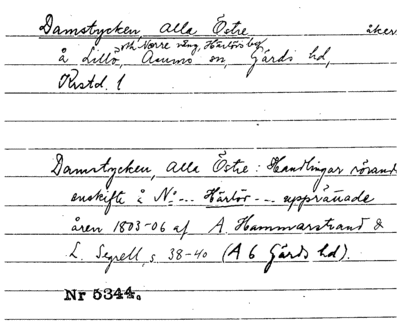 Damstycken, alla Östre åker
och Norre vång, Härlövs by,
å Lillö, Asumo sn, Gärds hd,
Krstd. l
Damstycken, alla Östre : Handlingar rörand
enskifte å No --- Härlöv --- upprättade
åren 1803-06 af A. Hammarstrand &
L. Segrell, s 38-40 (A 6 Gärds hd).
Nr 5344.